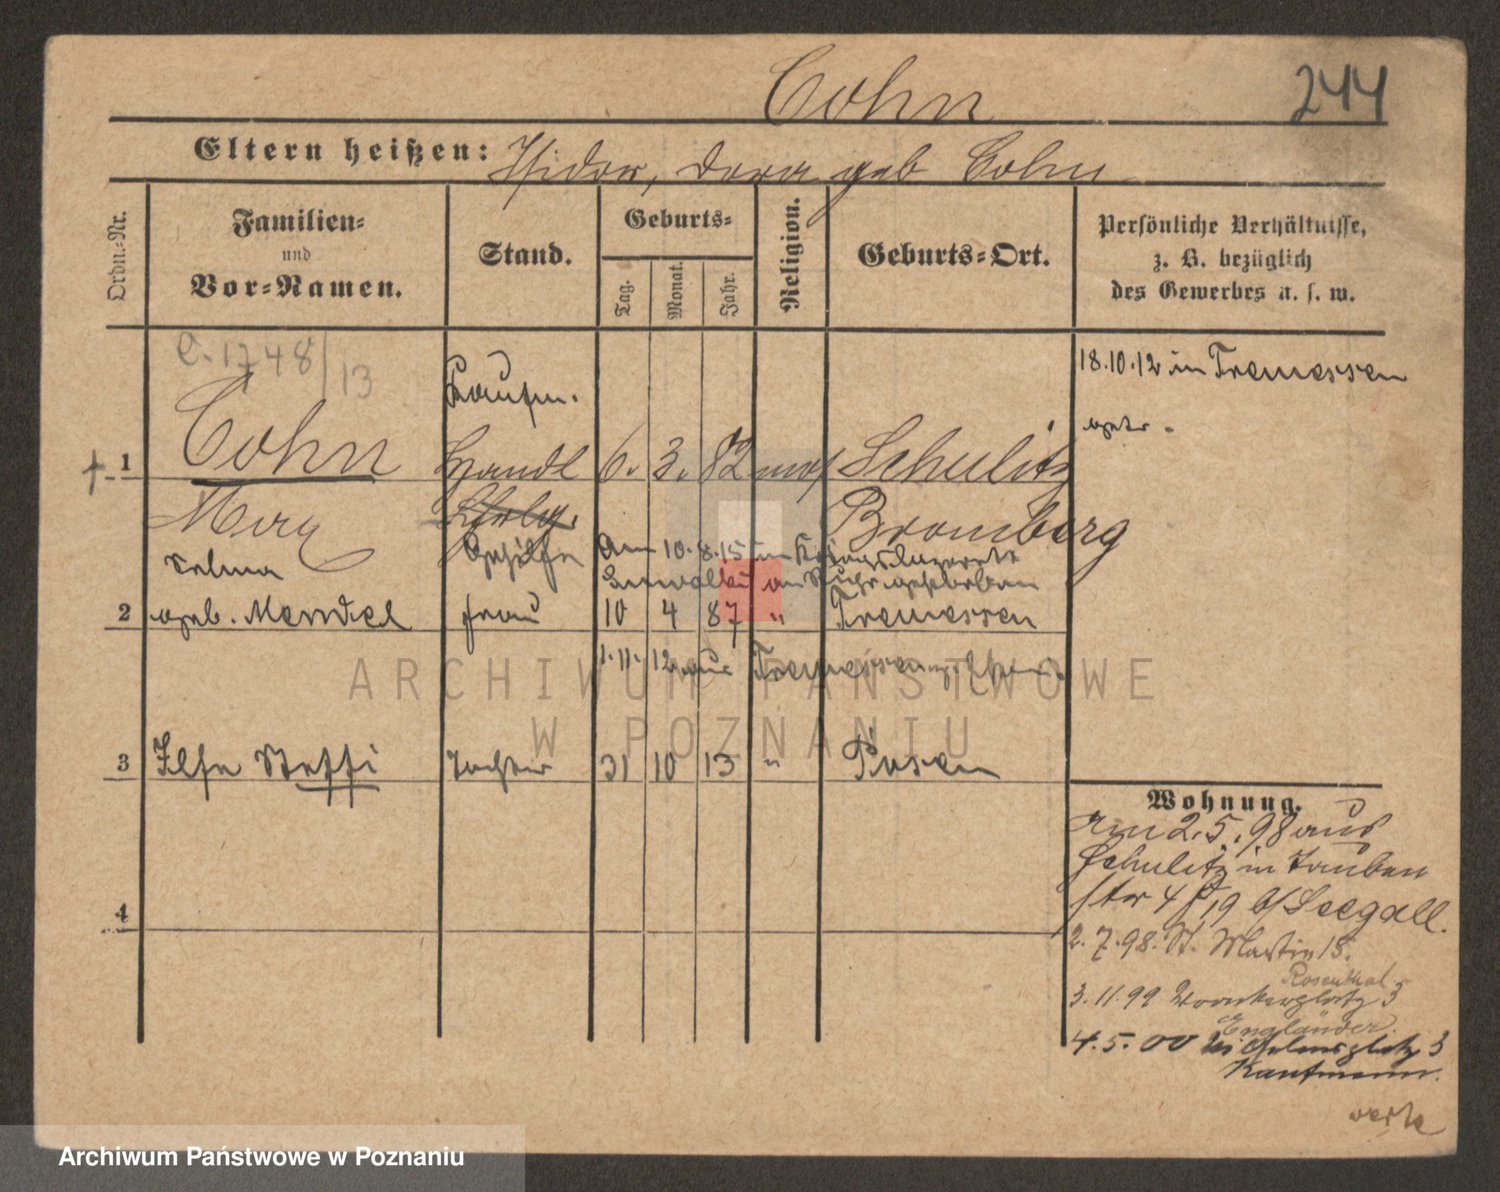 Cohn 244
Eltern heißen: Isidor, Dora geb Cohn
Ordn.-Nr. Familien- und Vor-Namen. Stand. Geburts- Tag. Monat. Jahr. Religion. Geburts-Ort. Persönliche Verhältnisse, z. B. bezüglich des Gewerbes u. s. w.
C. 1748/13
Kaufm. 18.10.12 in Tremessen
1 Cohn Handl 6. 3. 82 mos Schulitz
Max Bromberg
Gehilfe Am 10.8.15 im Kriegslazarett
Selma gestorben
2 geb. Mendel Frau 10 4 87 " Tremessen
1.11.12 aus Tremessen
3 Ilse Steffi Tochter 31 10 13 " Posen
4
Wohnung.
am 2.5.98 aus
Schulitz in Tauben
str 4 19 b/ Seegall.
2.7.98. St. Martin 18.
Rosenthal
3.11.99 3
Engländer.
4.5.00 Wilhelmsplatz 3
Kaufmann.
ARCHIWUM PAŃSTWOWE
W POZNANIU
Archiwum Państwowe w Poznaniu